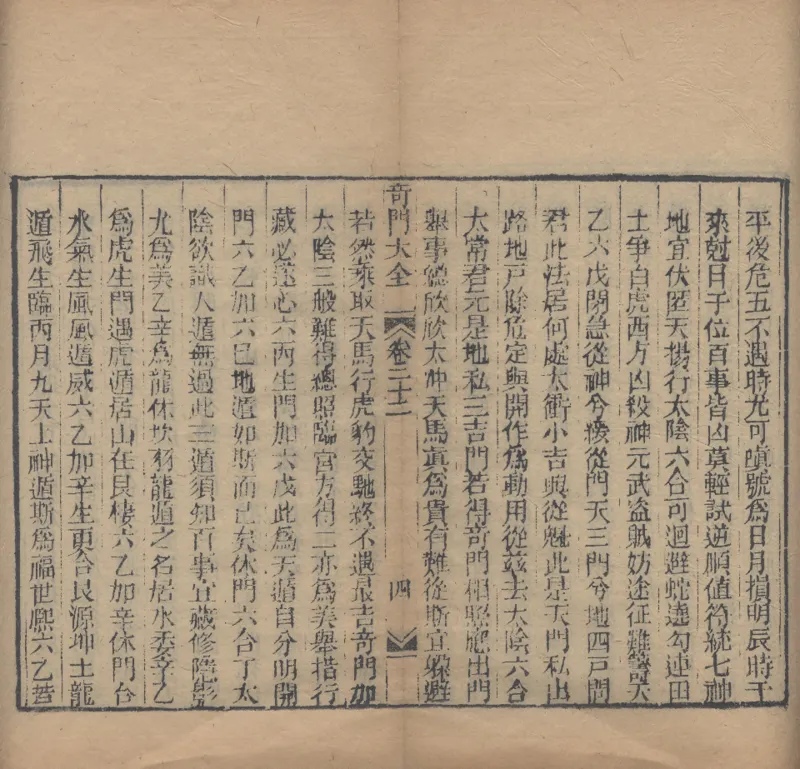 平後危五不遇時尤可嗔號爲日月損明辰時干
來尅日于位百事皆凶莫輕試逆順值符統七神
地宜伏匿天揚行太陰六合可迴避蛇遶勾連田
土爭白虎西方凶殺神元武盜賊妨途征雖
乙六戊閉急從神兮緩從門天三門兮地四戸問
君此法居何處太衝小吉與從魁此是天門私出
路地戸除危定與開作爲動用從兹去太陰六合
太常君元是地私三吉門若得奇門相照應出門
舉事緫欣欣太冲天馬眞爲貴有難從斯宜躲避
奇門大全 卷二十二 四
若然乘取天馬行虎豹交馳終不遇最吉奇門加
太陰三般難得總照臨宫方得二亦爲美舉措行
藏必遂心六丙生門加六戊此爲天遁自分明開
門六乙加六巳地遁如斯而已矣休門六合丁太
陰欲識人遁無過此三遁須知百事宜藏修隱影
尤爲美乙辛爲龍休坎務龍遁之名居水委辛乙
爲虎生門遇虎遁居山在艮棲六乙加辛休門合
水氣生風風遁威六乙加辛生更合艮源坤土龍
遁飛生臨丙月九天上神遁斯爲福世熈六乙